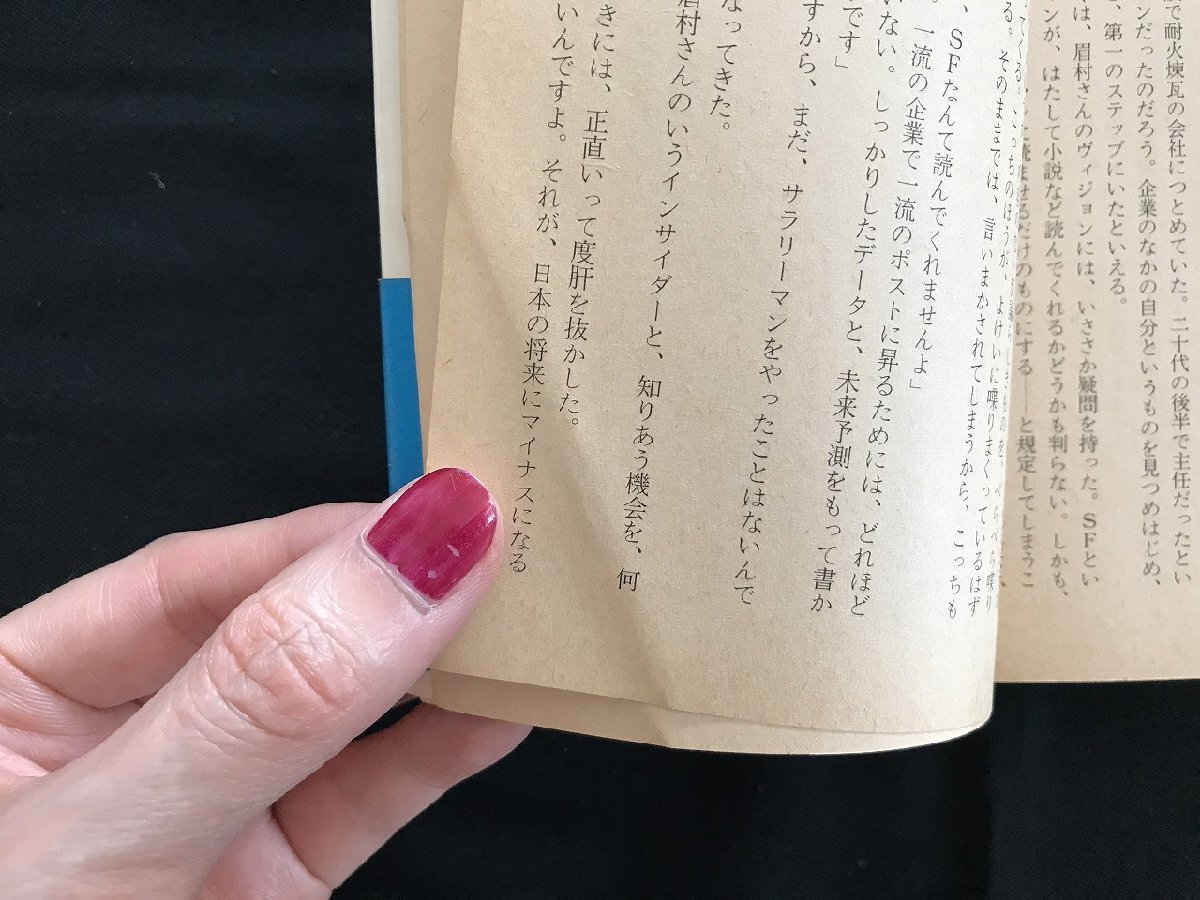 説で耐火煉瓦の会社につとめていた。二十代の後半で主任だったとい
ンだったのだろう。企業のなかの自分というものを見つめはじめ、
、第一のステップにいたといえる。
くは、眉村さんのヴィジョンには、いささか疑問を持った。SFとい
ンが、はたして小説など読んでくれるかどうかも判らない。しかも、
読ませるだけのものにする――と規定してしまうこ
てくる。こっちのほうが、よけいに喋りまくっているはず
る。そのままでは、言いまかされてしまうから、こっちも
、SFなんて読んでくれませんよ」
。一流の企業で一流のポストに昇るためには、どれほど
いない。しっかりしたデータと、未来予測をもって書か
です」
すから、まだ、サラリーマンをやったことはないんで
なってきた。
眉村さんのいうインサイダーと、知りあう機会を、何
きには、正直いって度肝を抜かした。
いんですよ。それが、日本の将来にマイナスになる